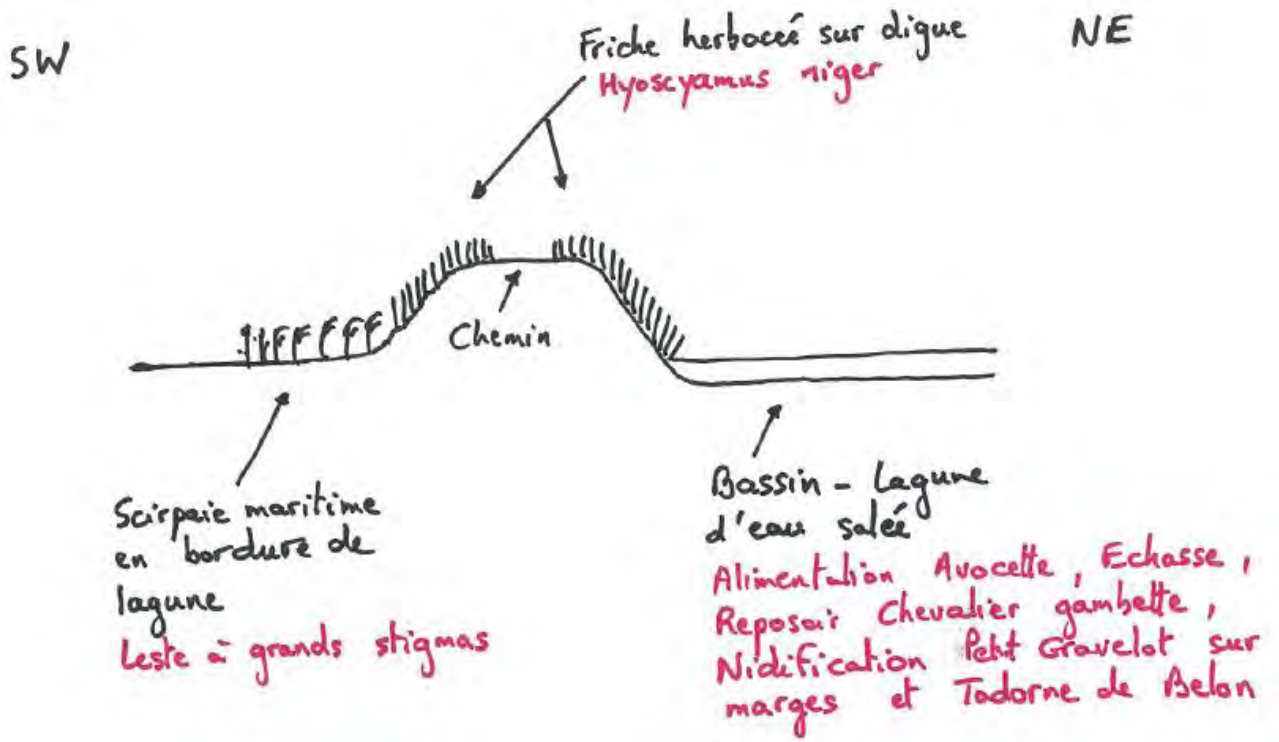 SW
Friche herbaceé sur digue
Hyoscyamus niger
NE
Chemin
Scirpaie maritime
en bordure de
lagune
Leste à grands stigmas
Bassin - Lagune
d'eau salée
Alimentation Avocette, Echasse,
Reposoir Chevalier gambette,
Nidification Petit Gravelot sur
marges et Tadorne de Belon